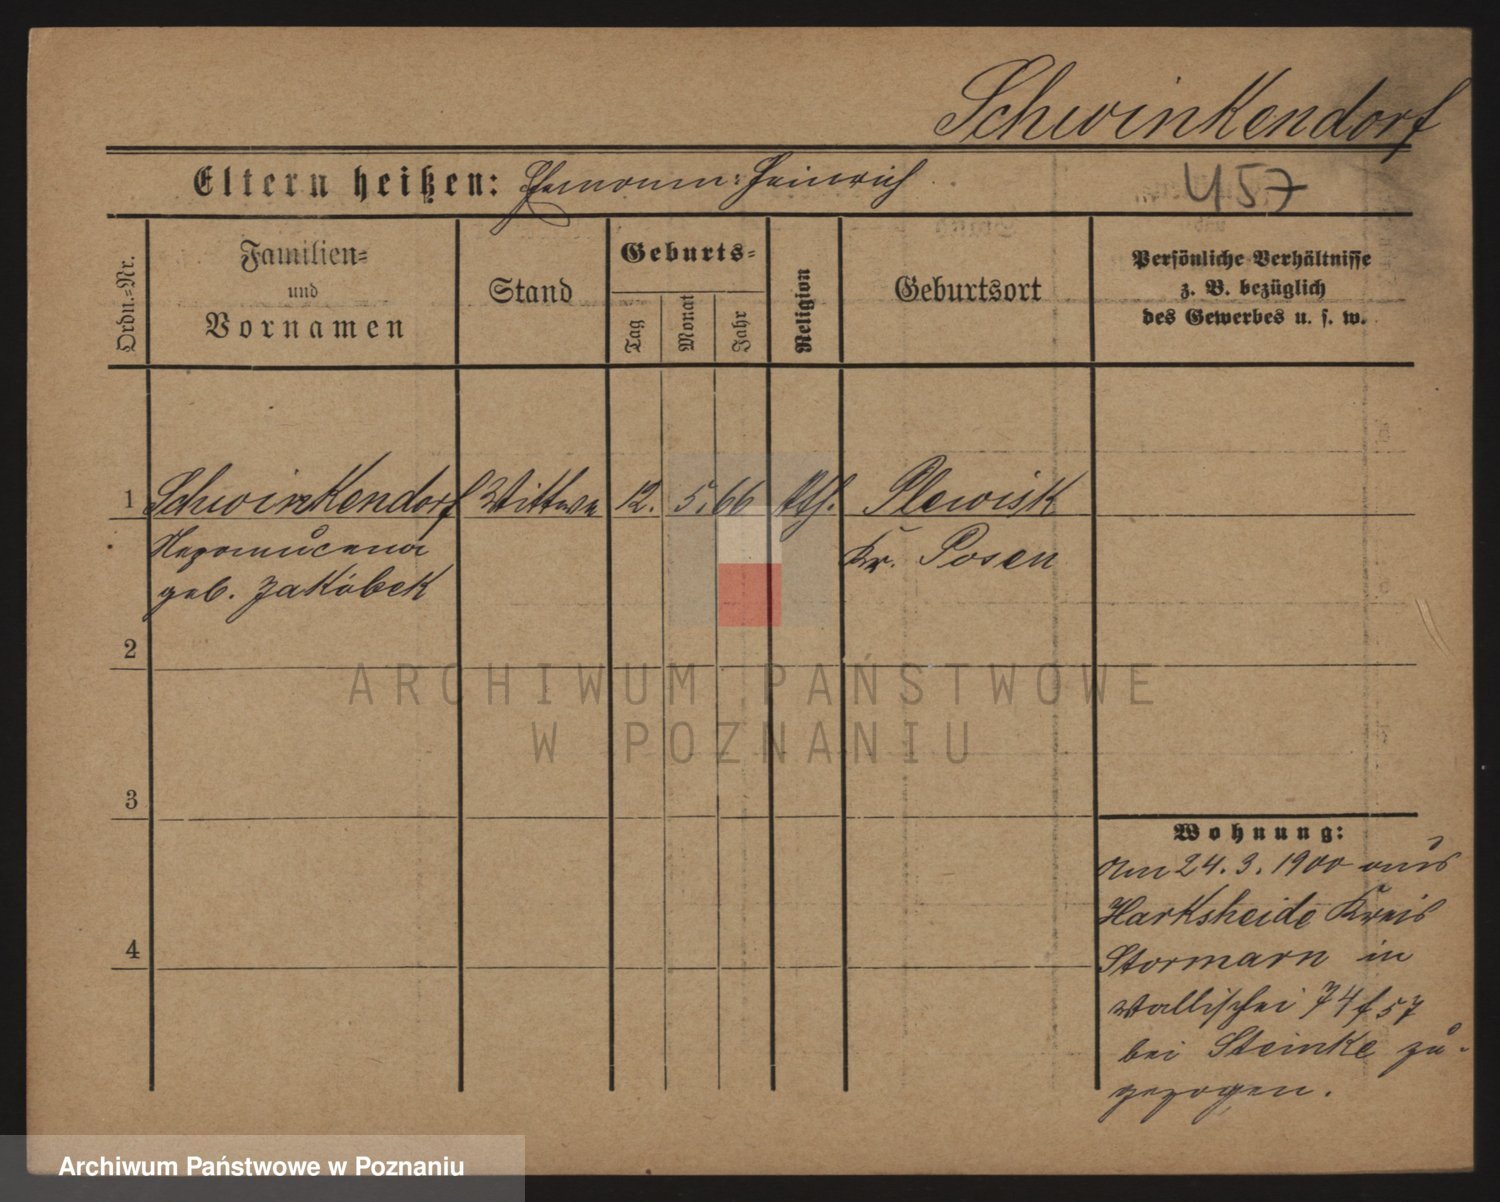 Schwinkendorf
Eltern heißen: Ehemann: Heinrich
457
Ordn.-Nr.
Familien-
und
Vornamen
Stand
Geburts-
Tag
Monat
Jahr
Religion
Geburtsort
Persönliche Verhältnisse
z. B. bezüglich
des Gewerbes u. s. w.
1 Schwinkendorf Wittwe 12. 5. 66 kth. Plewisk
Nepomucena Kr. Posen
geb. Jakóbek
2
3
4
Wohnung:
Am 24. 3. 1900 aus
Harksheide Kreis
Stormarn in
Wallischei 74/57
bei Steinke zu-
gezogen.
ARCHIWUM PAŃSTWOWE
W POZNANIU
Archiwum Państwowe w Poznaniu